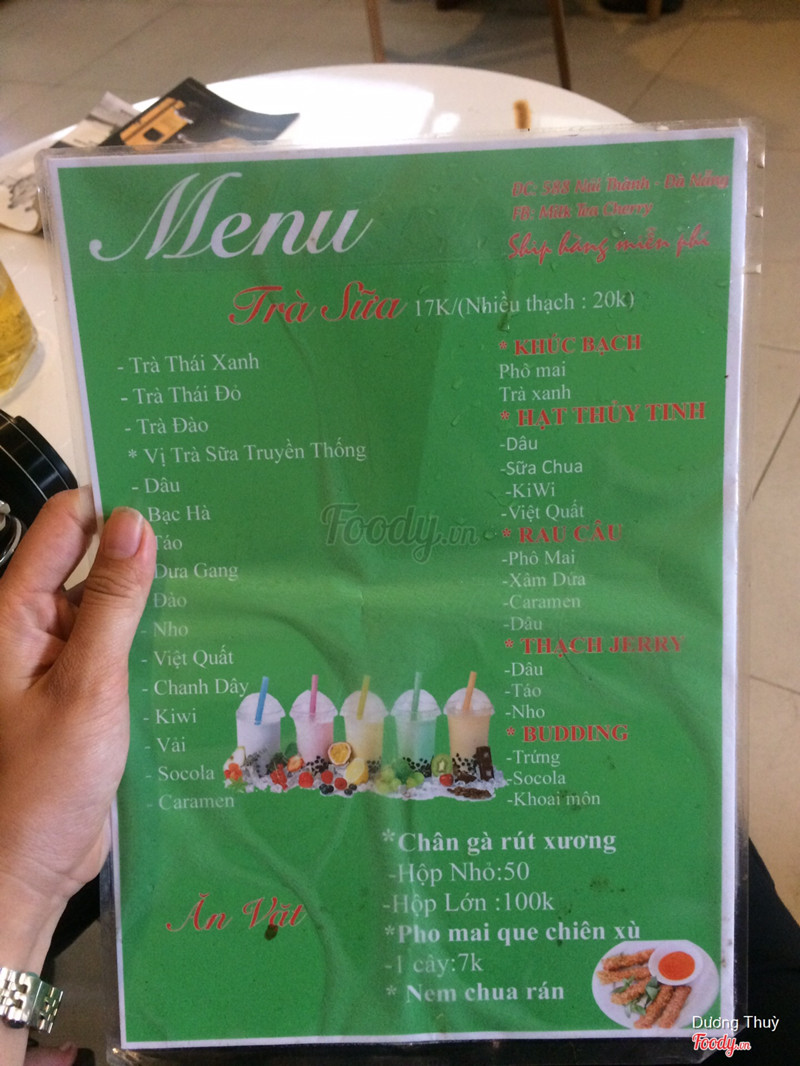 Menu
ĐC: 588 Núi Thành - Đà Nẵng
FB: Milk Tea Cherry
Ship hàng miễn phí
Trà Sữa 17K/(Nhiều thạch : 20k)
- Trà Thái Xanh
- Trà Thái Đỏ
- Trà Đào
* Vị Trà Sữa Truyền Thống
- Dâu
Bạc Hà
Táo
Dưa Gang
Đào
- Nho
- Việt Quất
- Chanh Dây
- Kiwi
- Vải
- Socola
- Caramen
* KHÚC BẠCH
Phô mai
Trà xanh
* HẠT THỦY TINH
-Dâu
-Sữa Chua
-KiWi
-Việt Quất
* RAU CÂU
-Phô Mai
-Xâm Dứa
-Caramen
-Dâu
* THẠCH JERRY
-Dâu
-Táo
-Nho
* BUDDING
-Trứng
-Socola
-Khoai môn
Ăn Vặt
*Chân gà rút xương
-Hộp Nhỏ:50
-Hộp Lớn :100k
*Pho mai que chiên xù
-1 cây:7k
* Nem chua rán
Foody.vn
Dương Thuỳ
Foody.vn